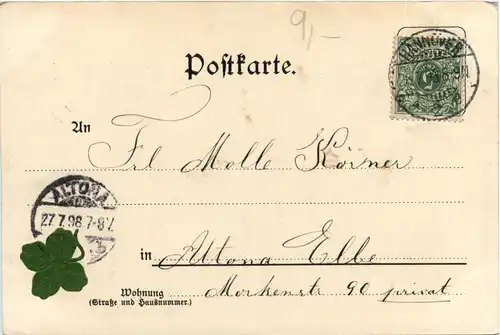 9,-
HANNOVER
Postkarte.
An Frl Molle Körner
ALTONA
27.7.98 7-8V.
in Altona Elbe
Wohnung Markenstr 90 privat
(Straße und Hausnummer.)